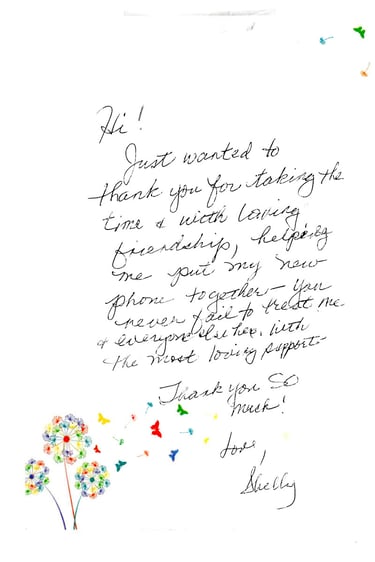 Hi!
Just wanted to
thank you for taking the
time & with loving
friendship, helping
me put my new
phone together — You
never fail to treat me
& everyone else here with
the most loving support—
Thank you so
much!
Love,
Shelly